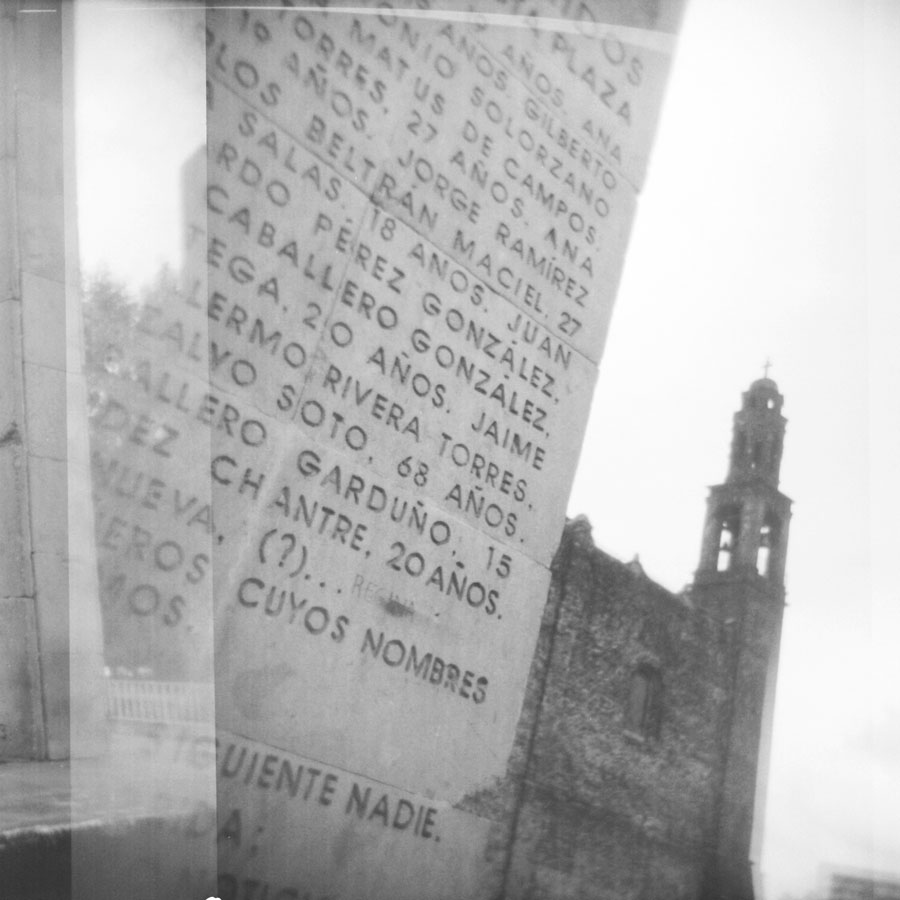 DOS
PLAZA
AÑOS. ANA
AÑOS. GILBERTO
ONIO SOLORZANO
MATUS DE CAMPOS,
TORRES, 27 AÑOS. ANA
19 AÑOS. JORGE RAMÍREZ
LOS BELTRÁN MACIEL, 27
SALAS, 18 AÑOS. JUAN
RDO PÉREZ GONZÁLEZ,
CABALLERO GONZÁLEZ,
TEGA, 20 AÑOS. JAIME
LERMO RIVERA TORRES,
ZALVO SOTO, 68 AÑOS.
ALLERO GARDUÑO, 15
DEZ CHANTRE, 20 AÑOS.
NUEVA, (?)... REGINA
EROS CUYOS NOMBRES
MOS.
IGUIENTE NADIE.
IDA;